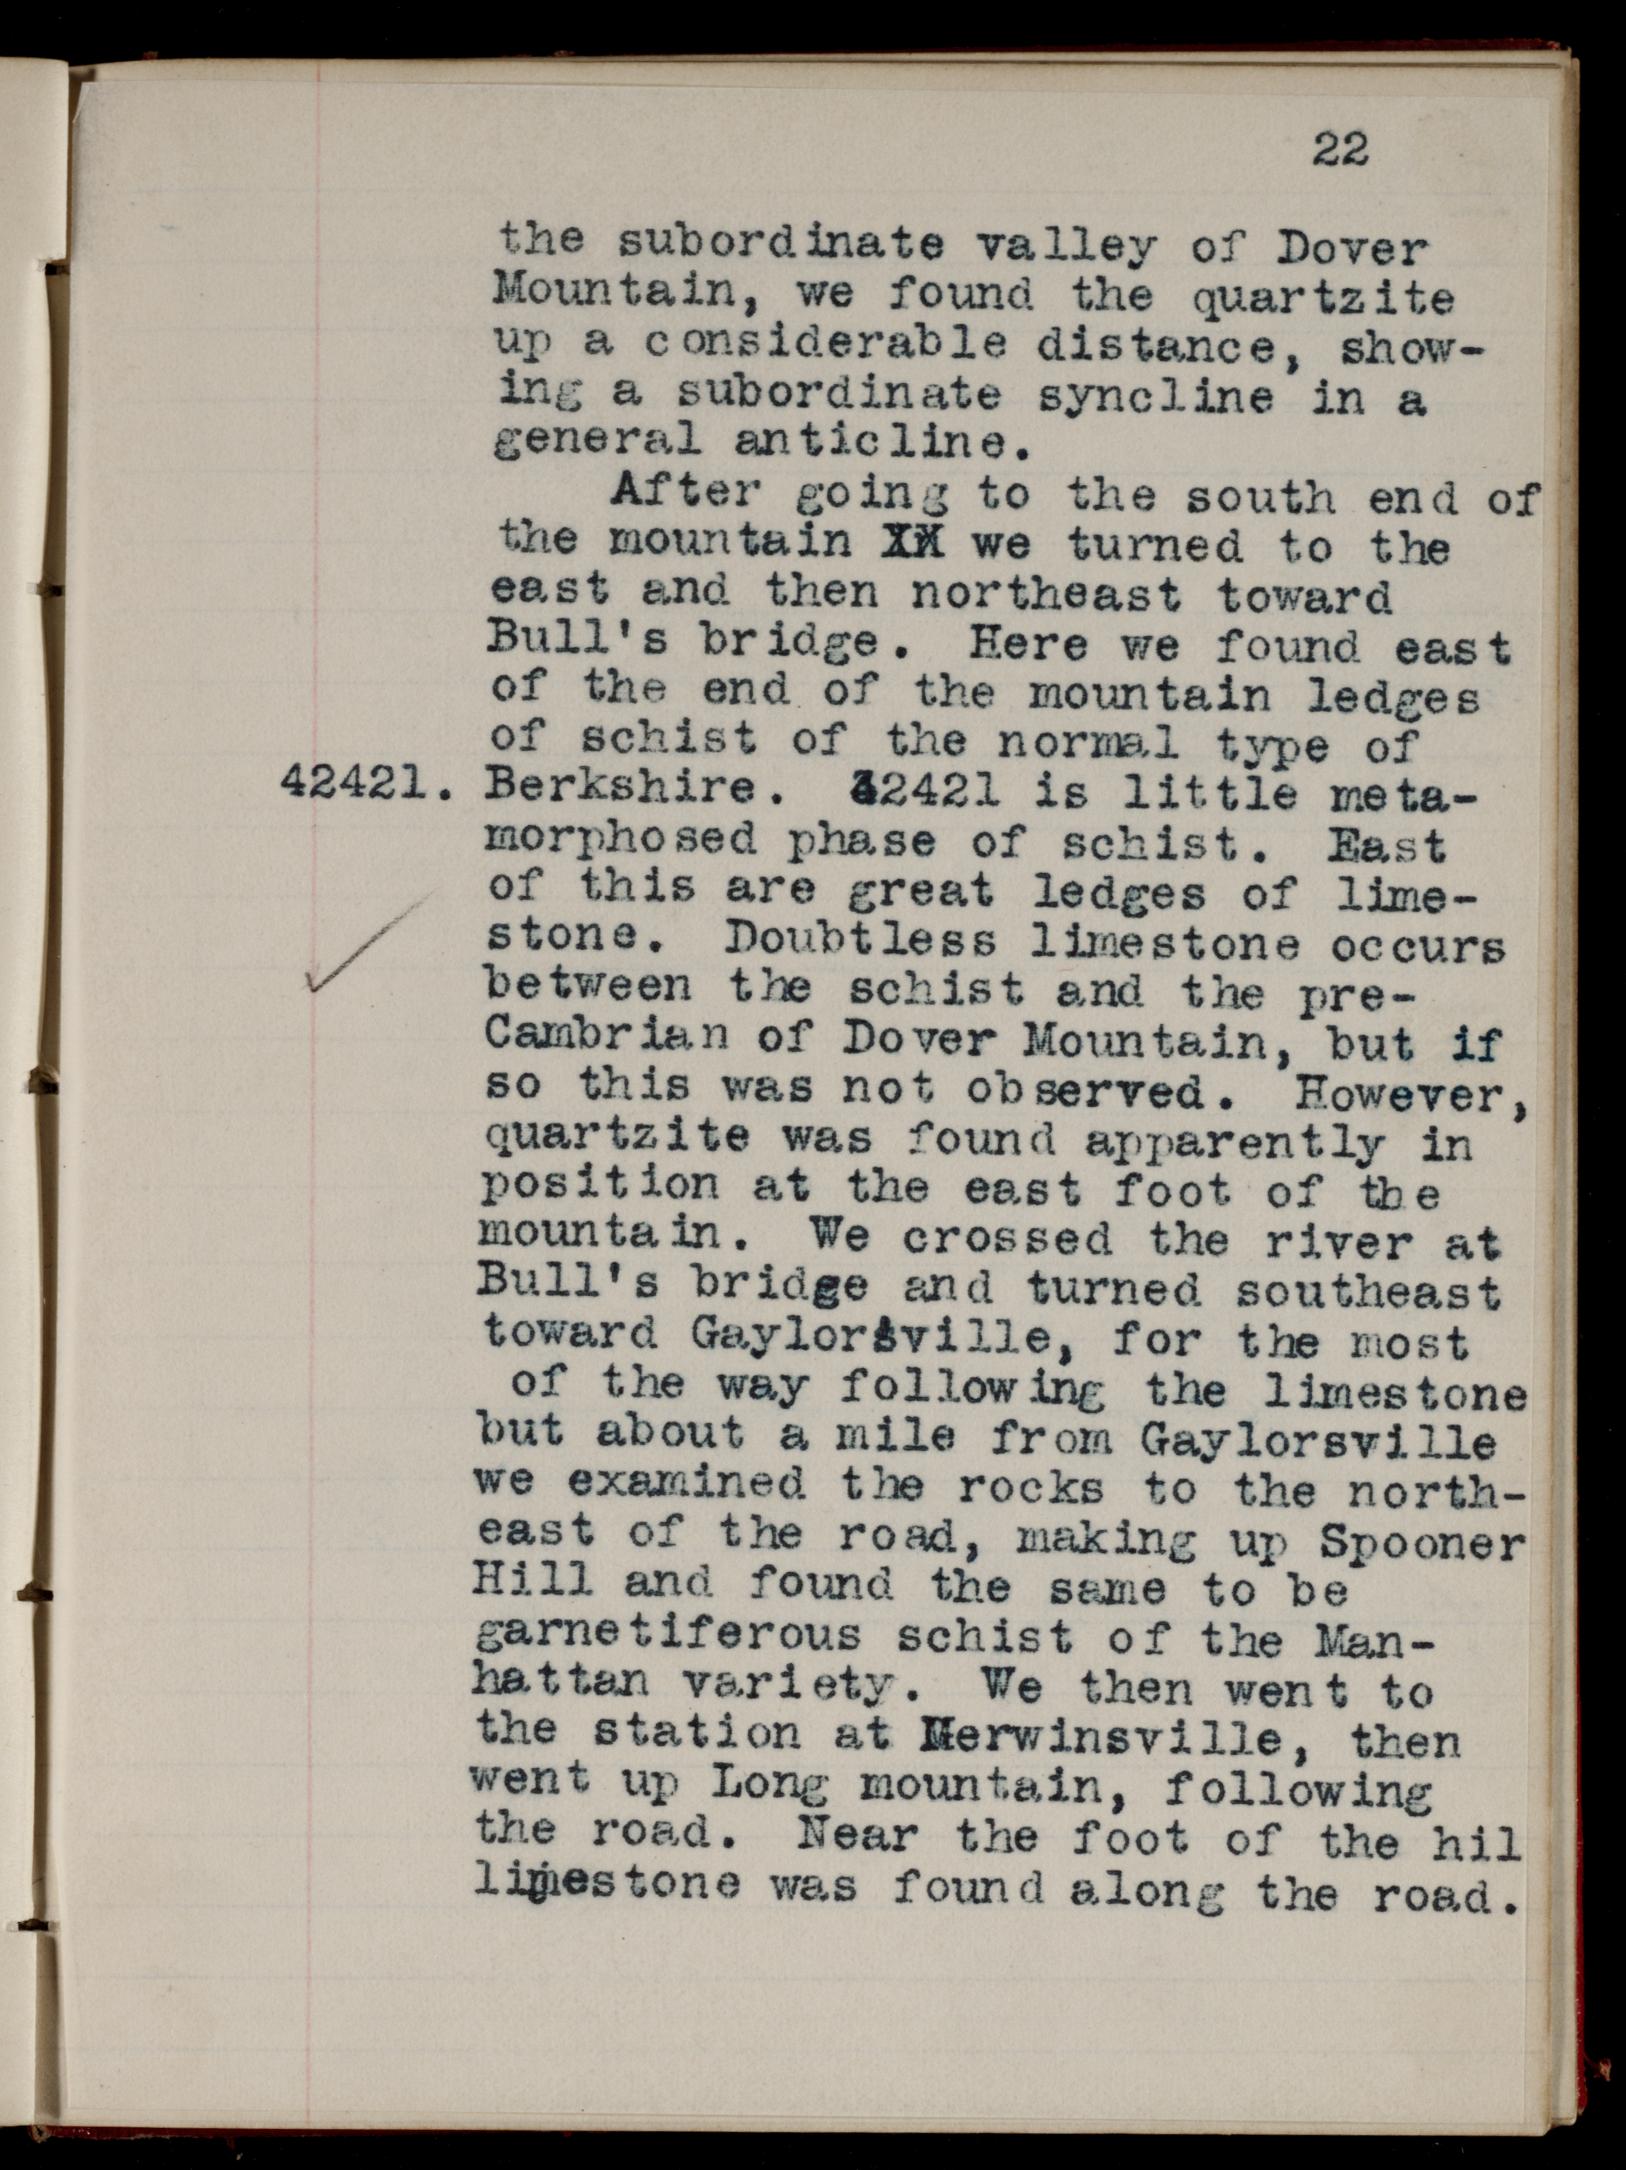 22
the subordinate valley of Dover
Mountain, we found the quartzite
up a considerable distance, show-
ing a subordinate syncline in a
general anticline.
After going to the south end of
the mountain XX we turned to the
east and then northeast toward
Bull's bridge. Here we found east
of the end of the mountain ledges
of schist of the normal type of
42421. Berkshire. 42421 is little meta-
morphosed phase of schist. East
of this are great ledges of lime-
stone. Doubtless limestone occurs
between the schist and the pre-
Cambrian of Dover Mountain, but if
so this was not observed. However,
quartzite was found apparently in
position at the east foot of the
mountain. We crossed the river at
Bull's bridge and turned southeast
toward Gaylorsville, for the most
of the way following the limestone
but about a mile from Gaylorsville
we examined the rocks to the north-
east of the road, making up Spooner
Hill and found the same to be
garnetiferous schist of the Man-
hattan variety. We then went to
the station at Merwinsville, then
went up Long mountain, following
the road. Near the foot of the hil
limestone was found along the road.